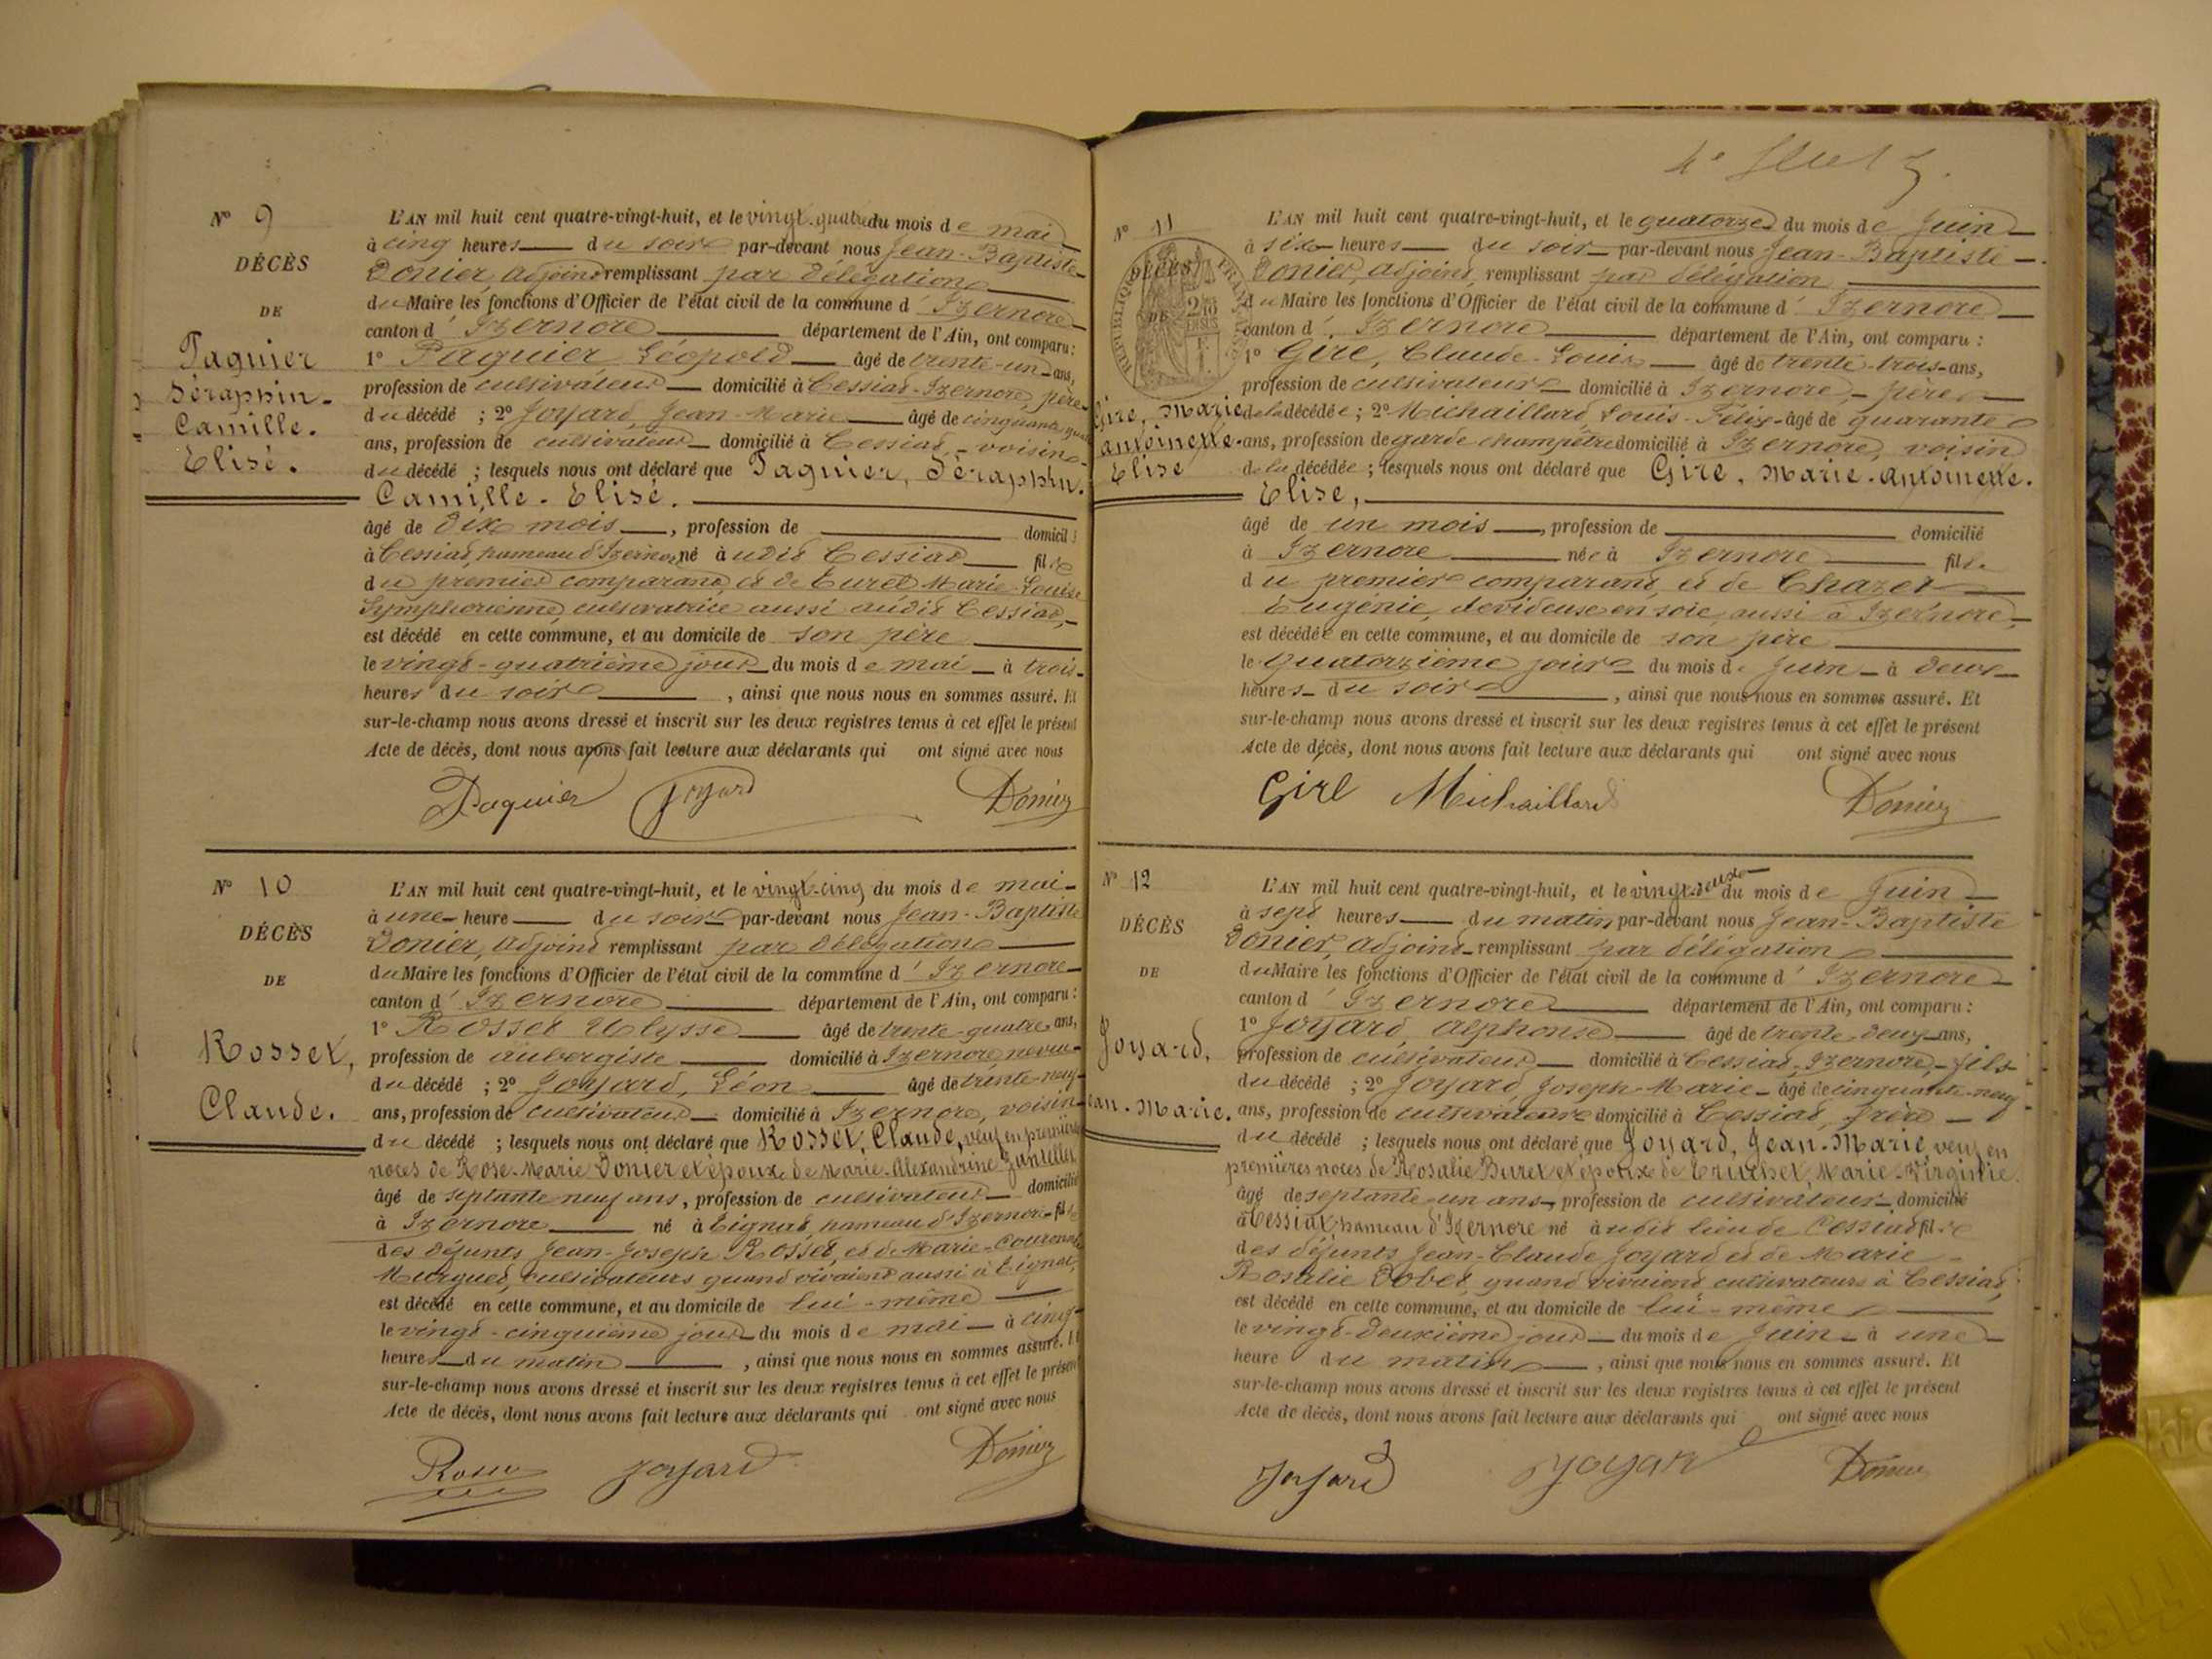 N° 9
DÉCÈS
DE
Paquier
Séraphin-
Camille.
Elisé.
L'AN mil huit cent quatre-vingt-huit, et le vingt-quatre du mois de mai
à cinq heures du soir par-devant nous Jean-Baptiste
Donier, adjoint remplissant par délégation
du Maire les fonctions d'Officier de l'état civil de la commune d'Izernore
canton d'Izernore département de l'Ain, ont comparu :
1° Paquier Léopold âgé de trente-un ans,
profession de cultivateur domicilié à Cessiat-Izernore, père
du décédé ; 2° Joyard, Jean-Marie âgé de cinquante
ans, profession de cultivateur domicilié à Cessiat, voisin
du décédé ; lesquels nous ont déclaré que Paquier, Séraphin.
Camille-Elisé.
âgé de dix mois, profession de domicil
à Cessiat, hameau d'Izernore, né à udit Cessiat fils
du premier comparant, et de Turel Marie-Louise
Symphorienne, cultivatrice aussi audit Cessiat,
est décédé en cette commune, et au domicile de son père
le vingt-quatrième jour du mois de mai à trois
heures du soir, ainsi que nous nous en sommes assuré. Et
sur-le-champ nous avons dressé et inscrit sur les deux registres tenus à cet effet le présent
Acte de décès, dont nous avons fait lecture aux déclarants qui ont signé avec nous
Paquier Joyard Donier
N° 10
DÉCÈS
DE
Rosset,
Claude.
L'AN mil huit cent quatre-vingt-huit, et le vingt-cinq du mois de mai
à une heure du soir par-devant nous Jean-Baptiste
Donier, adjoint remplissant par délégation
du Maire les fonctions d'Officier de l'état civil de la commune d'Izernore
canton d'Izernore département de l'Ain, ont comparu :
1° Rosset Ulysse âgé de trente-quatre ans,
profession de aubergiste domicilié à Izernore neveu
du décédé ; 2° Joyard, Léon âgé de trente-neuf
ans, profession de cultivateur domicilié à Izernore, voisin
du décédé ; lesquels nous ont déclaré que Rosset, Claude, veuf en premières
noces de Rose-Marie Donier et époux de Marie-Alexandrine
âgé de septante neuf ans, profession de cultivateur domicilié
à Izernore né à Tignat, hameau d'Izernore fils
des défunts Jean-Joseph Rosset, et de Marie-
cultivateurs quand vivaient aussi à Tignat,
est décédé en cette commune, et au domicile de lui-même
le vingt-cinquième jour du mois de mai à cinq
heures du matin, ainsi que nous nous en sommes assuré. Et
sur-le-champ nous avons dressé et inscrit sur les deux registres tenus à cet effet le présent
Acte de décès, dont nous avons fait lecture aux déclarants qui ont signé avec nous
Rosset Joyard Donier
4e
N° 11
DÉCÈS
DE
RÉPUBLIQUE FRANÇAISE
Gire, Marie
antoinette.
Elise
L'AN mil huit cent quatre-vingt-huit, et le quatorze du mois de Juin
à six heures du soir par-devant nous Jean-Baptiste
Donier, adjoint, remplissant par délégation
du Maire les fonctions d'Officier de l'état civil de la commune d'Izernore
canton d'Izernore département de l'Ain, ont comparu :
1° Gire, Claude-Louis âgé de trente-trois ans,
profession de cultivateur domicilié à Izernore, père
de la décédée ; 2° Michaillard Louis-Félix âgé de quarante
ans, profession de garde champêtre domicilié à Izernore, voisin
de la décédée ; lesquels nous ont déclaré que Gire, Marie-Antoinette.
Elise,
âgé de un mois, profession de domicilié
à Izernore née à Izernore fille
du premier comparant, et de Chazet
Eugénie, dévideuse en soie, aussi à Izernore,
est décédée en cette commune, et au domicile de son père
le quatorzième jour du mois de Juin à deux
heures du soir, ainsi que nous nous en sommes assuré. Et
sur-le-champ nous avons dressé et inscrit sur les deux registres tenus à cet effet le présent
Acte de décès, dont nous avons fait lecture aux déclarants qui ont signé avec nous
Gire Michaillard Donier
N° 12
DÉCÈS
DE
Joyard,
ean-Marie.
L'AN mil huit cent quatre-vingt-huit, et le vingt-deux du mois de Juin
à sept heures du matin par-devant nous Jean-Baptiste
Donier, adjoint remplissant par délégation
du Maire les fonctions d'Officier de l'état civil de la commune d'Izernore
canton d'Izernore département de l'Ain, ont comparu :
1° Joyard, Alphonse âgé de trente-deux ans,
profession de cultivateur domicilié à Cessiat, Izernore, fils
du décédé ; 2° Joyard Joseph-Marie âgé de cinquante-neuf
ans, profession de cultivateur domicilié à Cessiat, frère
du décédé ; lesquels nous ont déclaré que Joyard, Jean-Marie veuf en
premières noces de Rosalie Buret et époux de Truchet, Marie-Virginie.
âgé de septante-un ans, profession de cultivateur domicilié
à Cessiat, hameau d'Izernore né à udit lieu de Cessiat fils
des défunts Jean-Claude Joyard et de Marie
Rosalie Dobet, quand vivaient cultivateurs à Cessiat,
est décédé en cette commune, et au domicile de lui-même
le vingt-deuxième jour du mois de Juin à une
heure du matin, ainsi que nous nous en sommes assuré. Et
sur-le-champ nous avons dressé et inscrit sur les deux registres tenus à cet effet le présent
Acte de décès, dont nous avons fait lecture aux déclarants qui ont signé avec nous
Joyard Joyard Donier